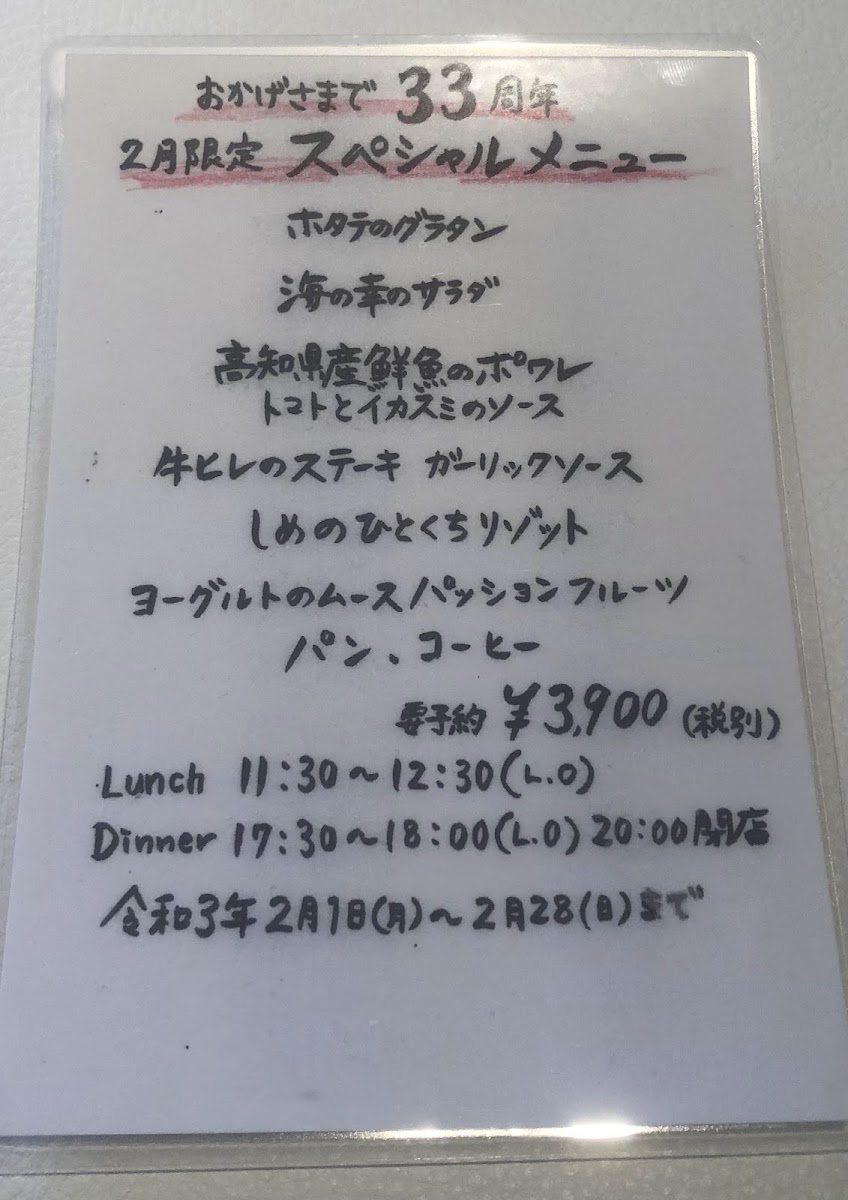 おかげさまで 33周年
2月限定 スペシャルメニュー
ホタテのグラタン
海の幸のサラダ
高知県産鮮魚のポワレ
トマトとイカスミのソース
牛ヒレのステーキ ガーリックソース
しめのひとくちリゾット
ヨーグルトのムースパッションフルーツ
パン、コーヒー
要予約 ¥3,900 (税別)
Lunch 11:30~12:30(L.O)
Dinner 17:30~18:00(L.O) 20:00閉店
令和3年2月1日(月)~2月28(日)まで